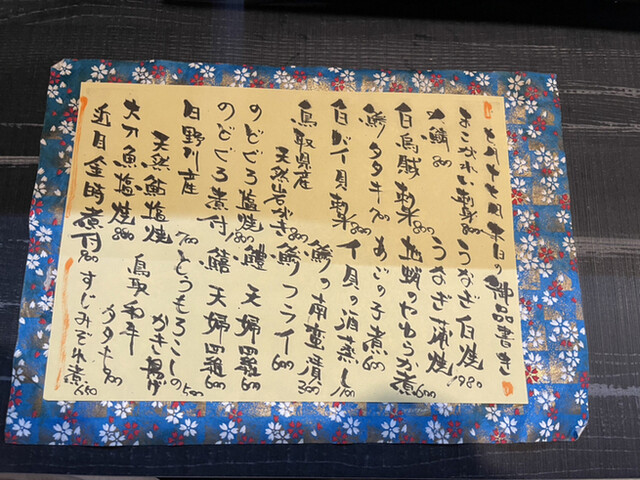 本日の御品書き
まこがれい刺身 800 うなぎ白焼 1980
〆鯖 800 うなぎ蒲焼
白烏賊刺身 地蛸のやわらか煮 600
鯵タタキ 700 あごの子煮 600
白バイ貝刺身 800 イ貝の酒蒸し
鳥取県産 鯵の南蛮漬 300
天然岩がき 鯵フライ 600
のどぐろ塩焼 1800 鱧天婦羅 600
のどぐろ煮付 鱚天婦羅 600
日野川産
天然鮎塩焼 700 とうもろこしの
かき揚げ 500
太刀魚塩焼 800 鳥取和牛
タタキ
近目金時煮付 すじみぞれ煮